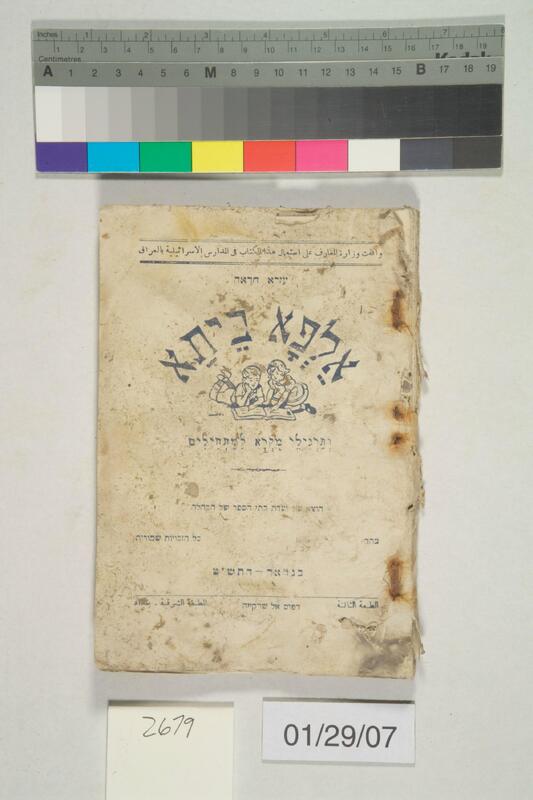 Inches 1 2 3 4 5 6 7 8
Centimetres 1 2 3 4 5 6 7 8 9 10 11 12 13 14 15 16 17 18 19
Kodak
A 1 2 3 4 5 6 M 8 9 10 11 12 13 14 15 B 17 18 19
وافقت وزارة المعارف على استعمال هذا الكتاب في المدارس الاسرائيلية بالعراق
עזרא חדאד
אַלְפָא בֵּיתָא
וְתַרְגִּילֵי מִקְרָא לַמַּתְחִילִים
הוצאת ועדת בתי הספר של הקהלה
כל הזכויות שמורות
בגדאד – התש״ט
الطبعة الثالثة דפוס אל שרקייה المطبعة الشرقية . بغداد
2679
01/29/07